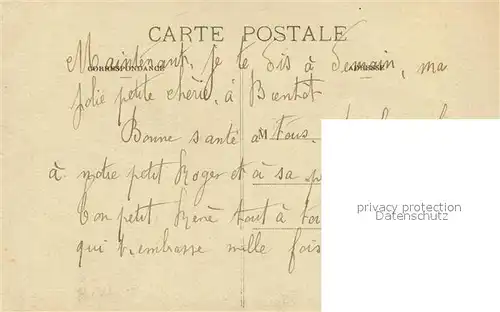 CARTE POSTALE
CORRESPONDANCE
ADRESSE
Maintenant, je te dis à demain, ma
jolie petite chérie, à Bientôt
Bonne santé à tous,
M
à notre petit Roger et à sa
Ton petit René tout à toi
qui t'embrasse mille fois
privacy protection
Datenschutz